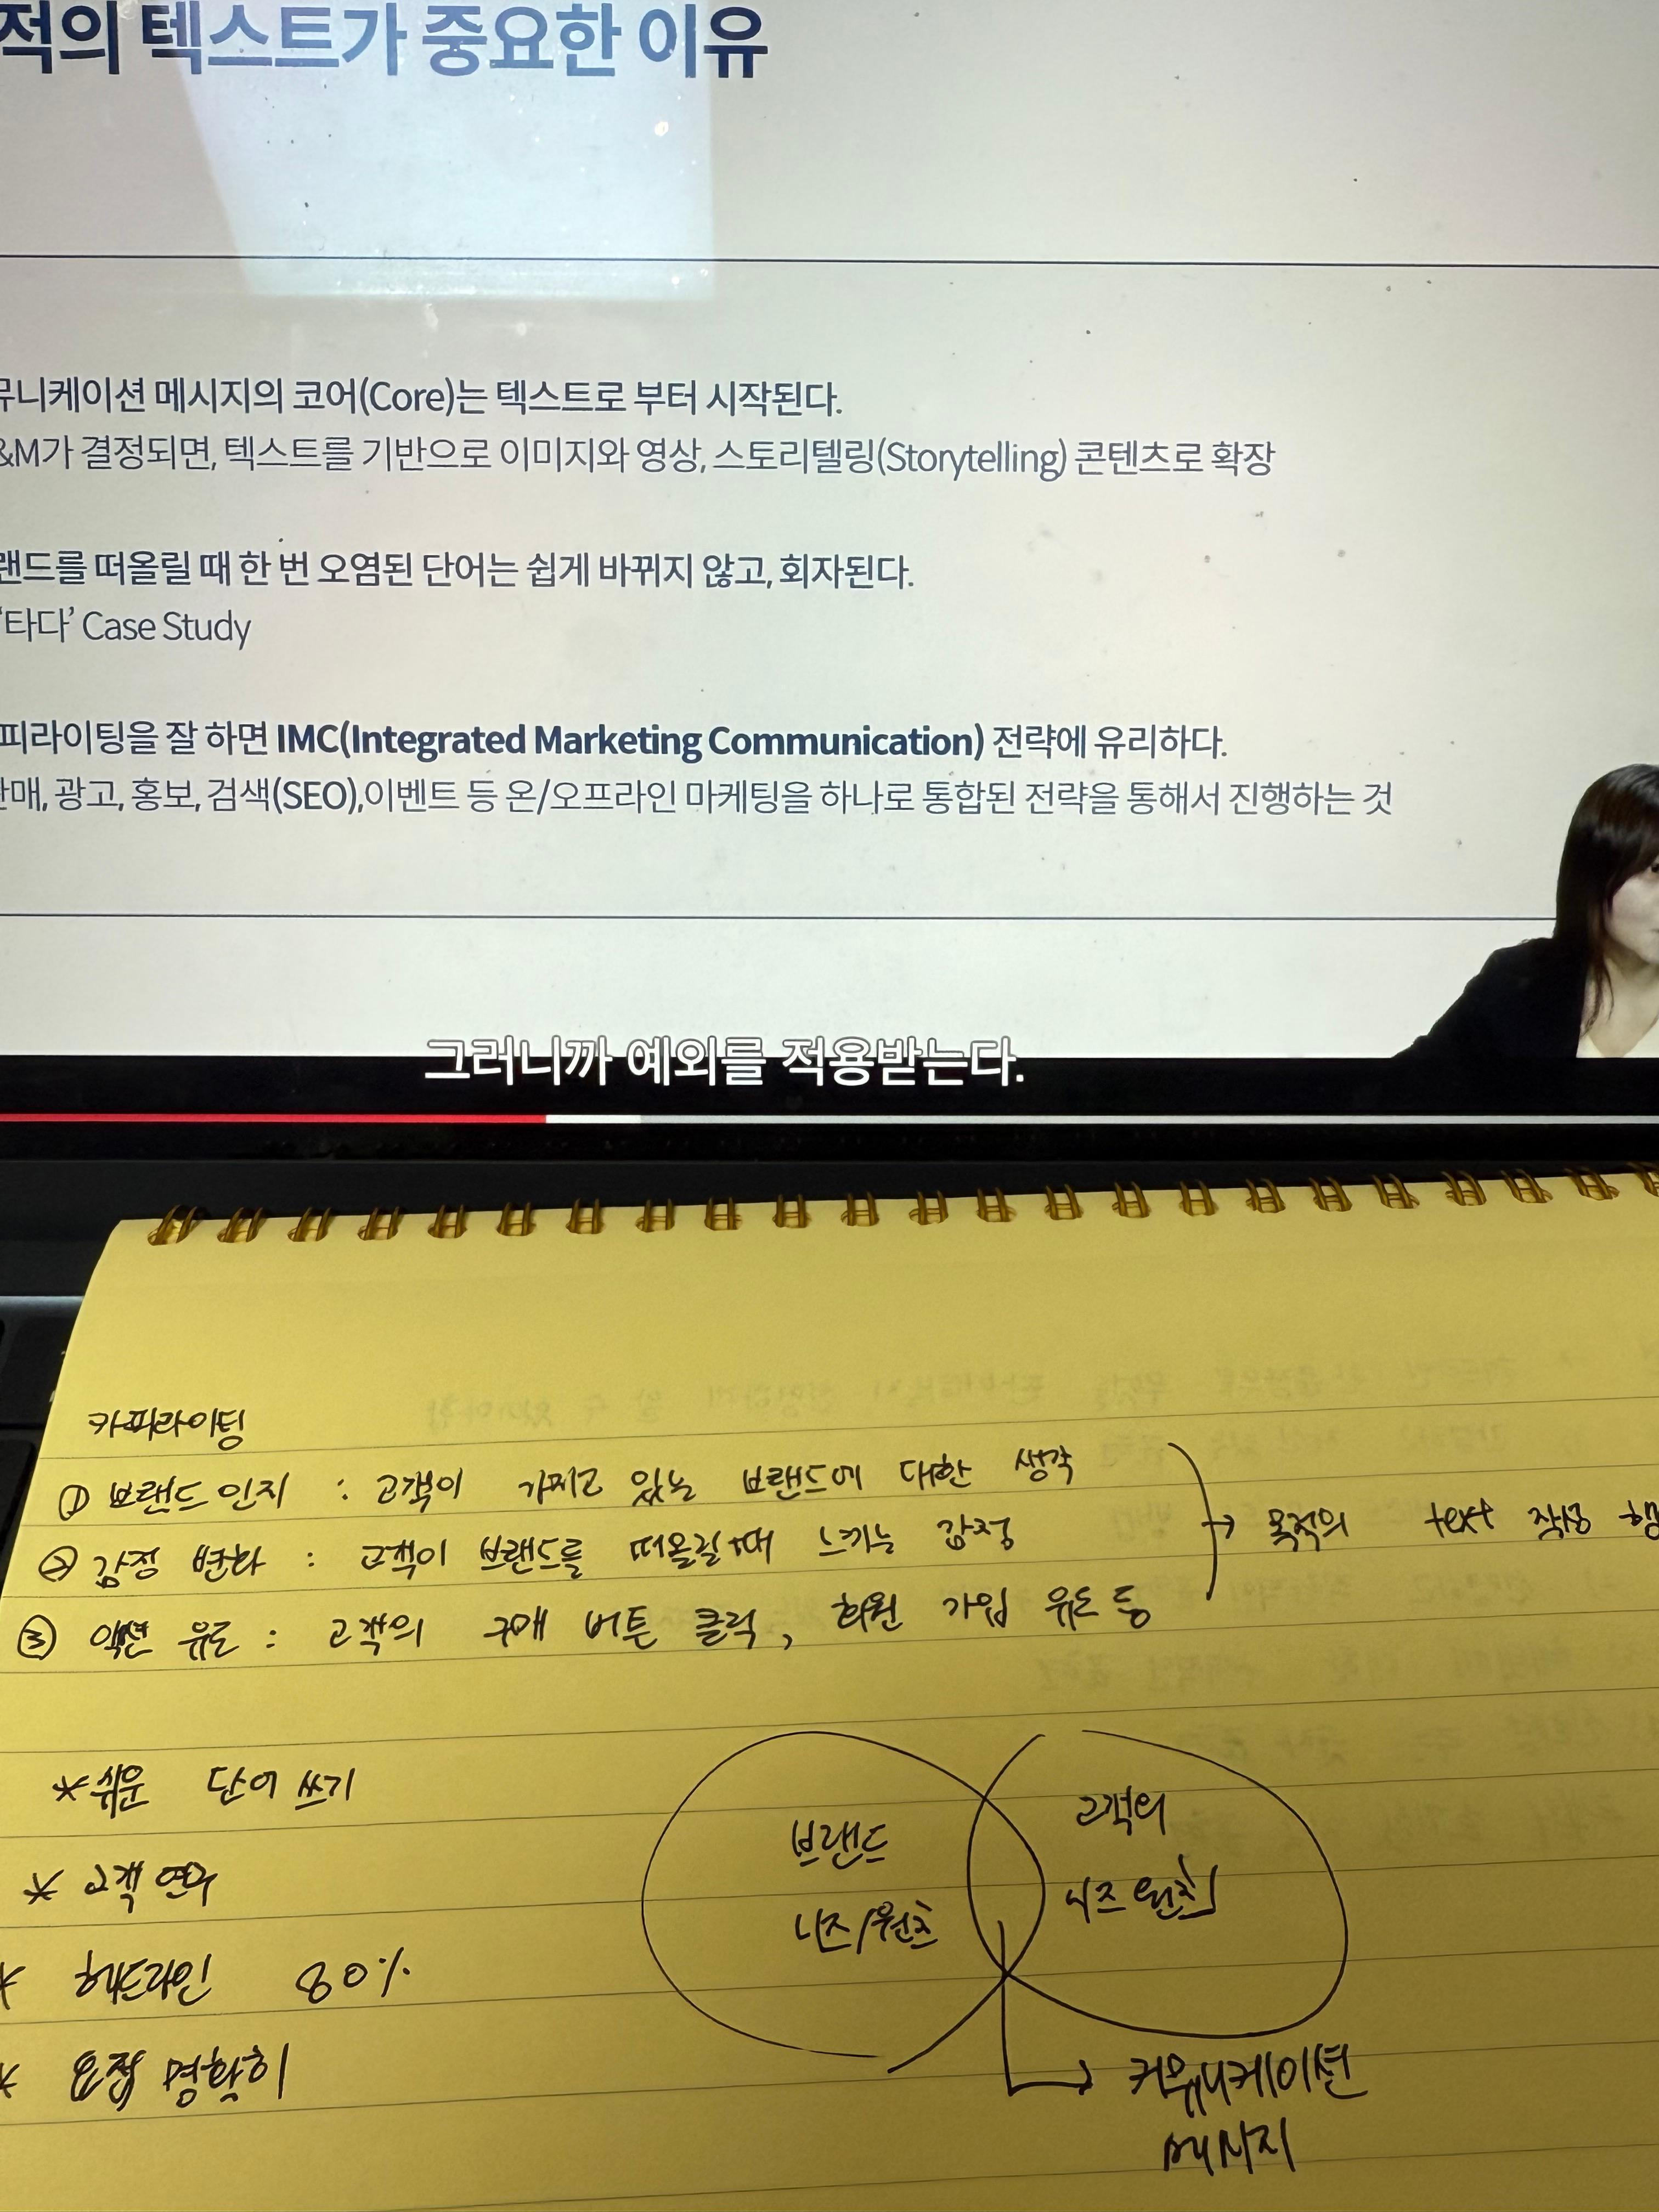 적의 텍스트가 중요한 이유
뮤니케이션 메시지의 코어(Core)는 텍스트로 부터 시작된다.
&M가 결정되면, 텍스트를 기반으로 이미지와 영상, 스토리텔링(Storytelling) 콘텐츠로 확장
랜드를 떠올릴 때 한 번 오염된 단어는 쉽게 바뀌지 않고, 회자된다.
'타다' Case Study
피라이팅을 잘 하면 IMC(Integrated Marketing Communication) 전략에 유리하다.
판매, 광고, 홍보, 검색(SEO),이벤트 등 온/오프라인 마케팅을 하나로 통합된 전략을 통해서 진행하는 것
그러니까 예외를 적용받는다.
카피라이팅
① 브랜드 인지 : 고객이 가지고 있는 브랜드에 대한 생각
② 감정 변화 : 고객이 브랜드를 떠올릴 때 느끼는 감정
→ 목적의 text 작성
③ 액션 유도 : 고객의 구매 버튼 클릭, 회원 가입 유도 등
*쉬운 단어 쓰기
* 고객 연구
* 헤드라인 80%
* 요점 명확히
브랜드
니즈/원츠
고객의
니즈 원츠
→ 커뮤니케이션
메시지